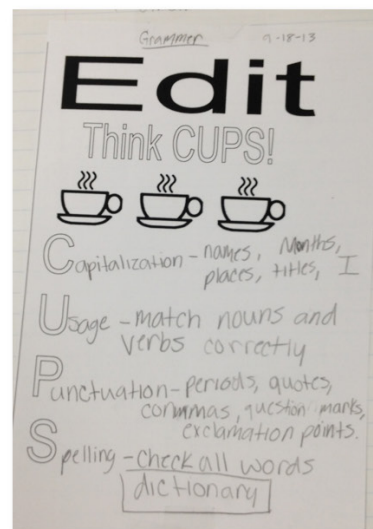 Grammer 9-18-13
Edit
Think CUPS!
Capitalization - names, Months,
places, titles, I
Usage - match nouns and
verbs correctly
Punctuation - periods, quotes,
commas, question marks,
exclamation points.
Spelling - check all words
dictionary